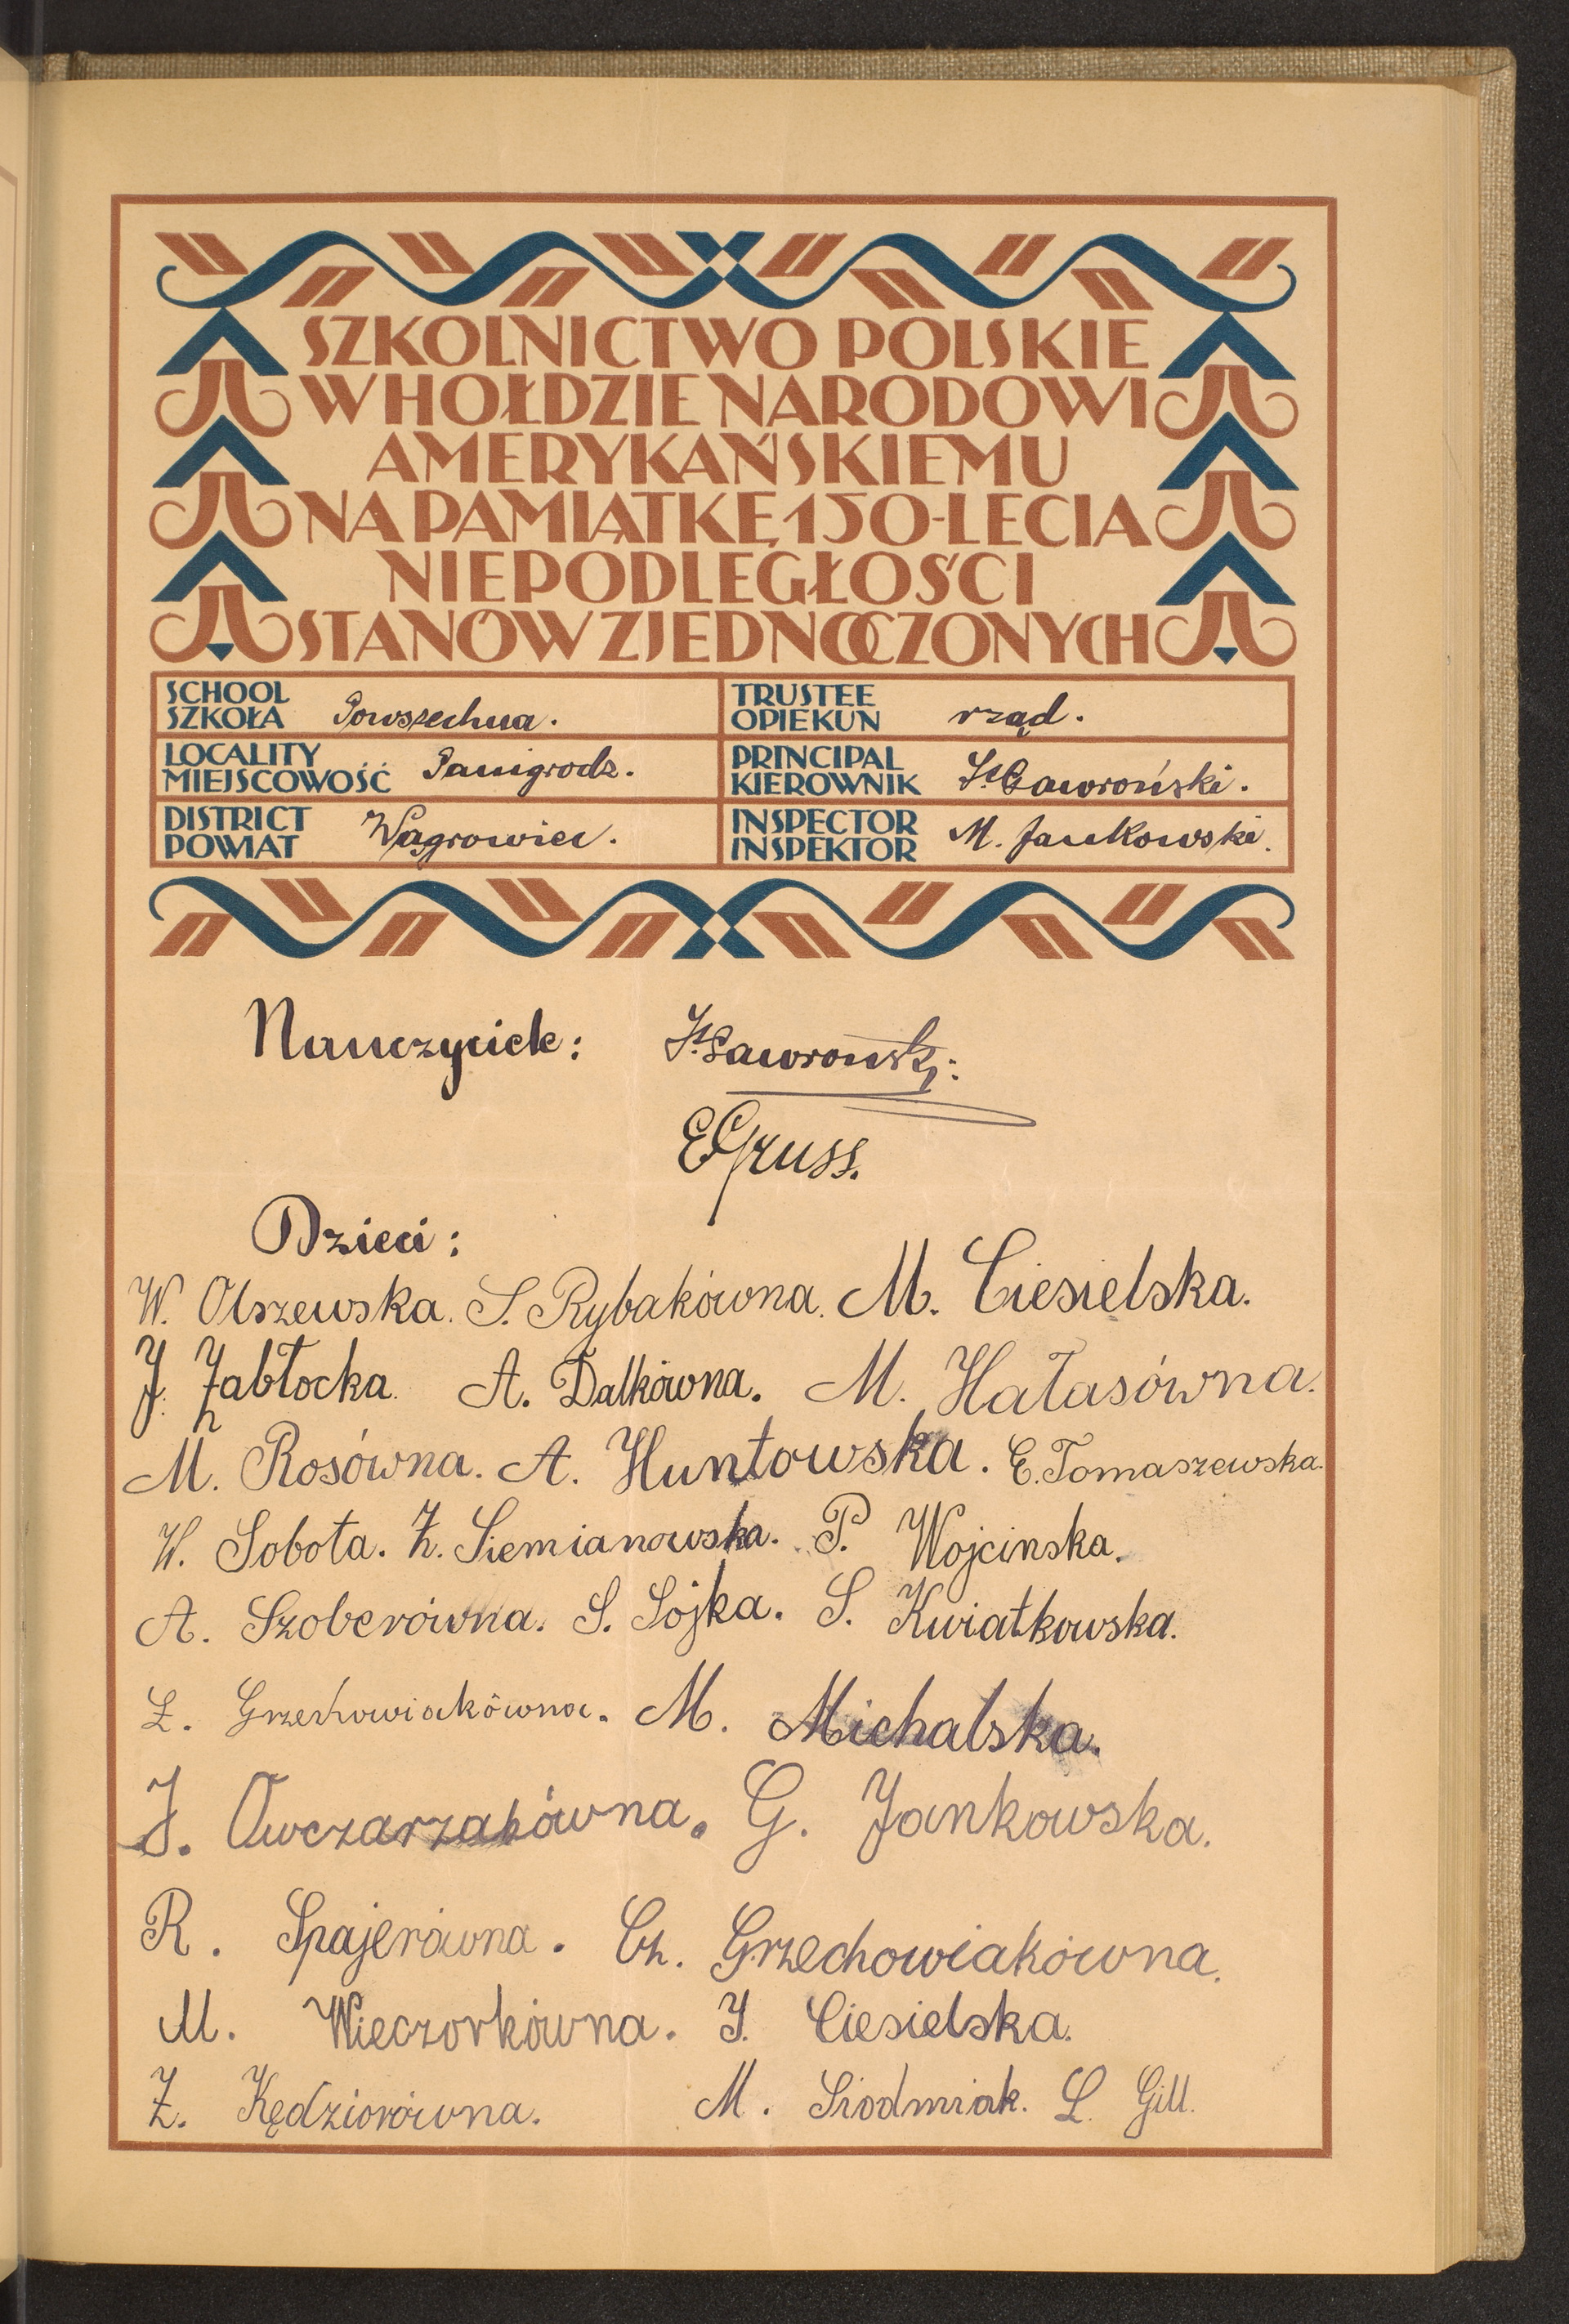 SZKOLNICTWO POLSKIE
W HOŁDZIE NARODOWI
AMERYKAŃSKIEMU
NA PAMIĄTKĘ 150-LECIA
NIEPODLEGŁOŚCI
STANÓW ZJEDNOCZONYCH
SCHOOL
SZKOŁA Powszechna.
TRUSTEE
OPIEKUN rząd.
LOCALITY
MIEJSCOWOŚĆ Panigrodz.
PRINCIPAL
KIEROWNIK St. Gawroński.
DISTRICT
POWIAT Wągrowiec.
INSPECTOR
INSPEKTOR M. Jankowski.
Nauczyciele: St. Gawroński.
E Gruss.
Dzieci:
W. Olszewska. S. Rybakówna. M. Ciesielska.
J. Żabłocka. A. Dalkówna. M. Hałasówna.
M. Rosówna. A. Huntowska. E. Tomaszewska.
W. Sobota. Z. Siemianowska. P. Wojcinska.
A. Szoberówna. S. Sójka. S. Kwiatkowska.
Ł. Grzechowiakówna. M. Michalska.
J. Owczarzakówna. G. Jankowska.
R. Spajerówna. Cz. Grzechowiakówna.
M. Wieczorkówna. J. Ciesielska.
Z. Kędziorówna. M. Siodmiak. L. Gill.